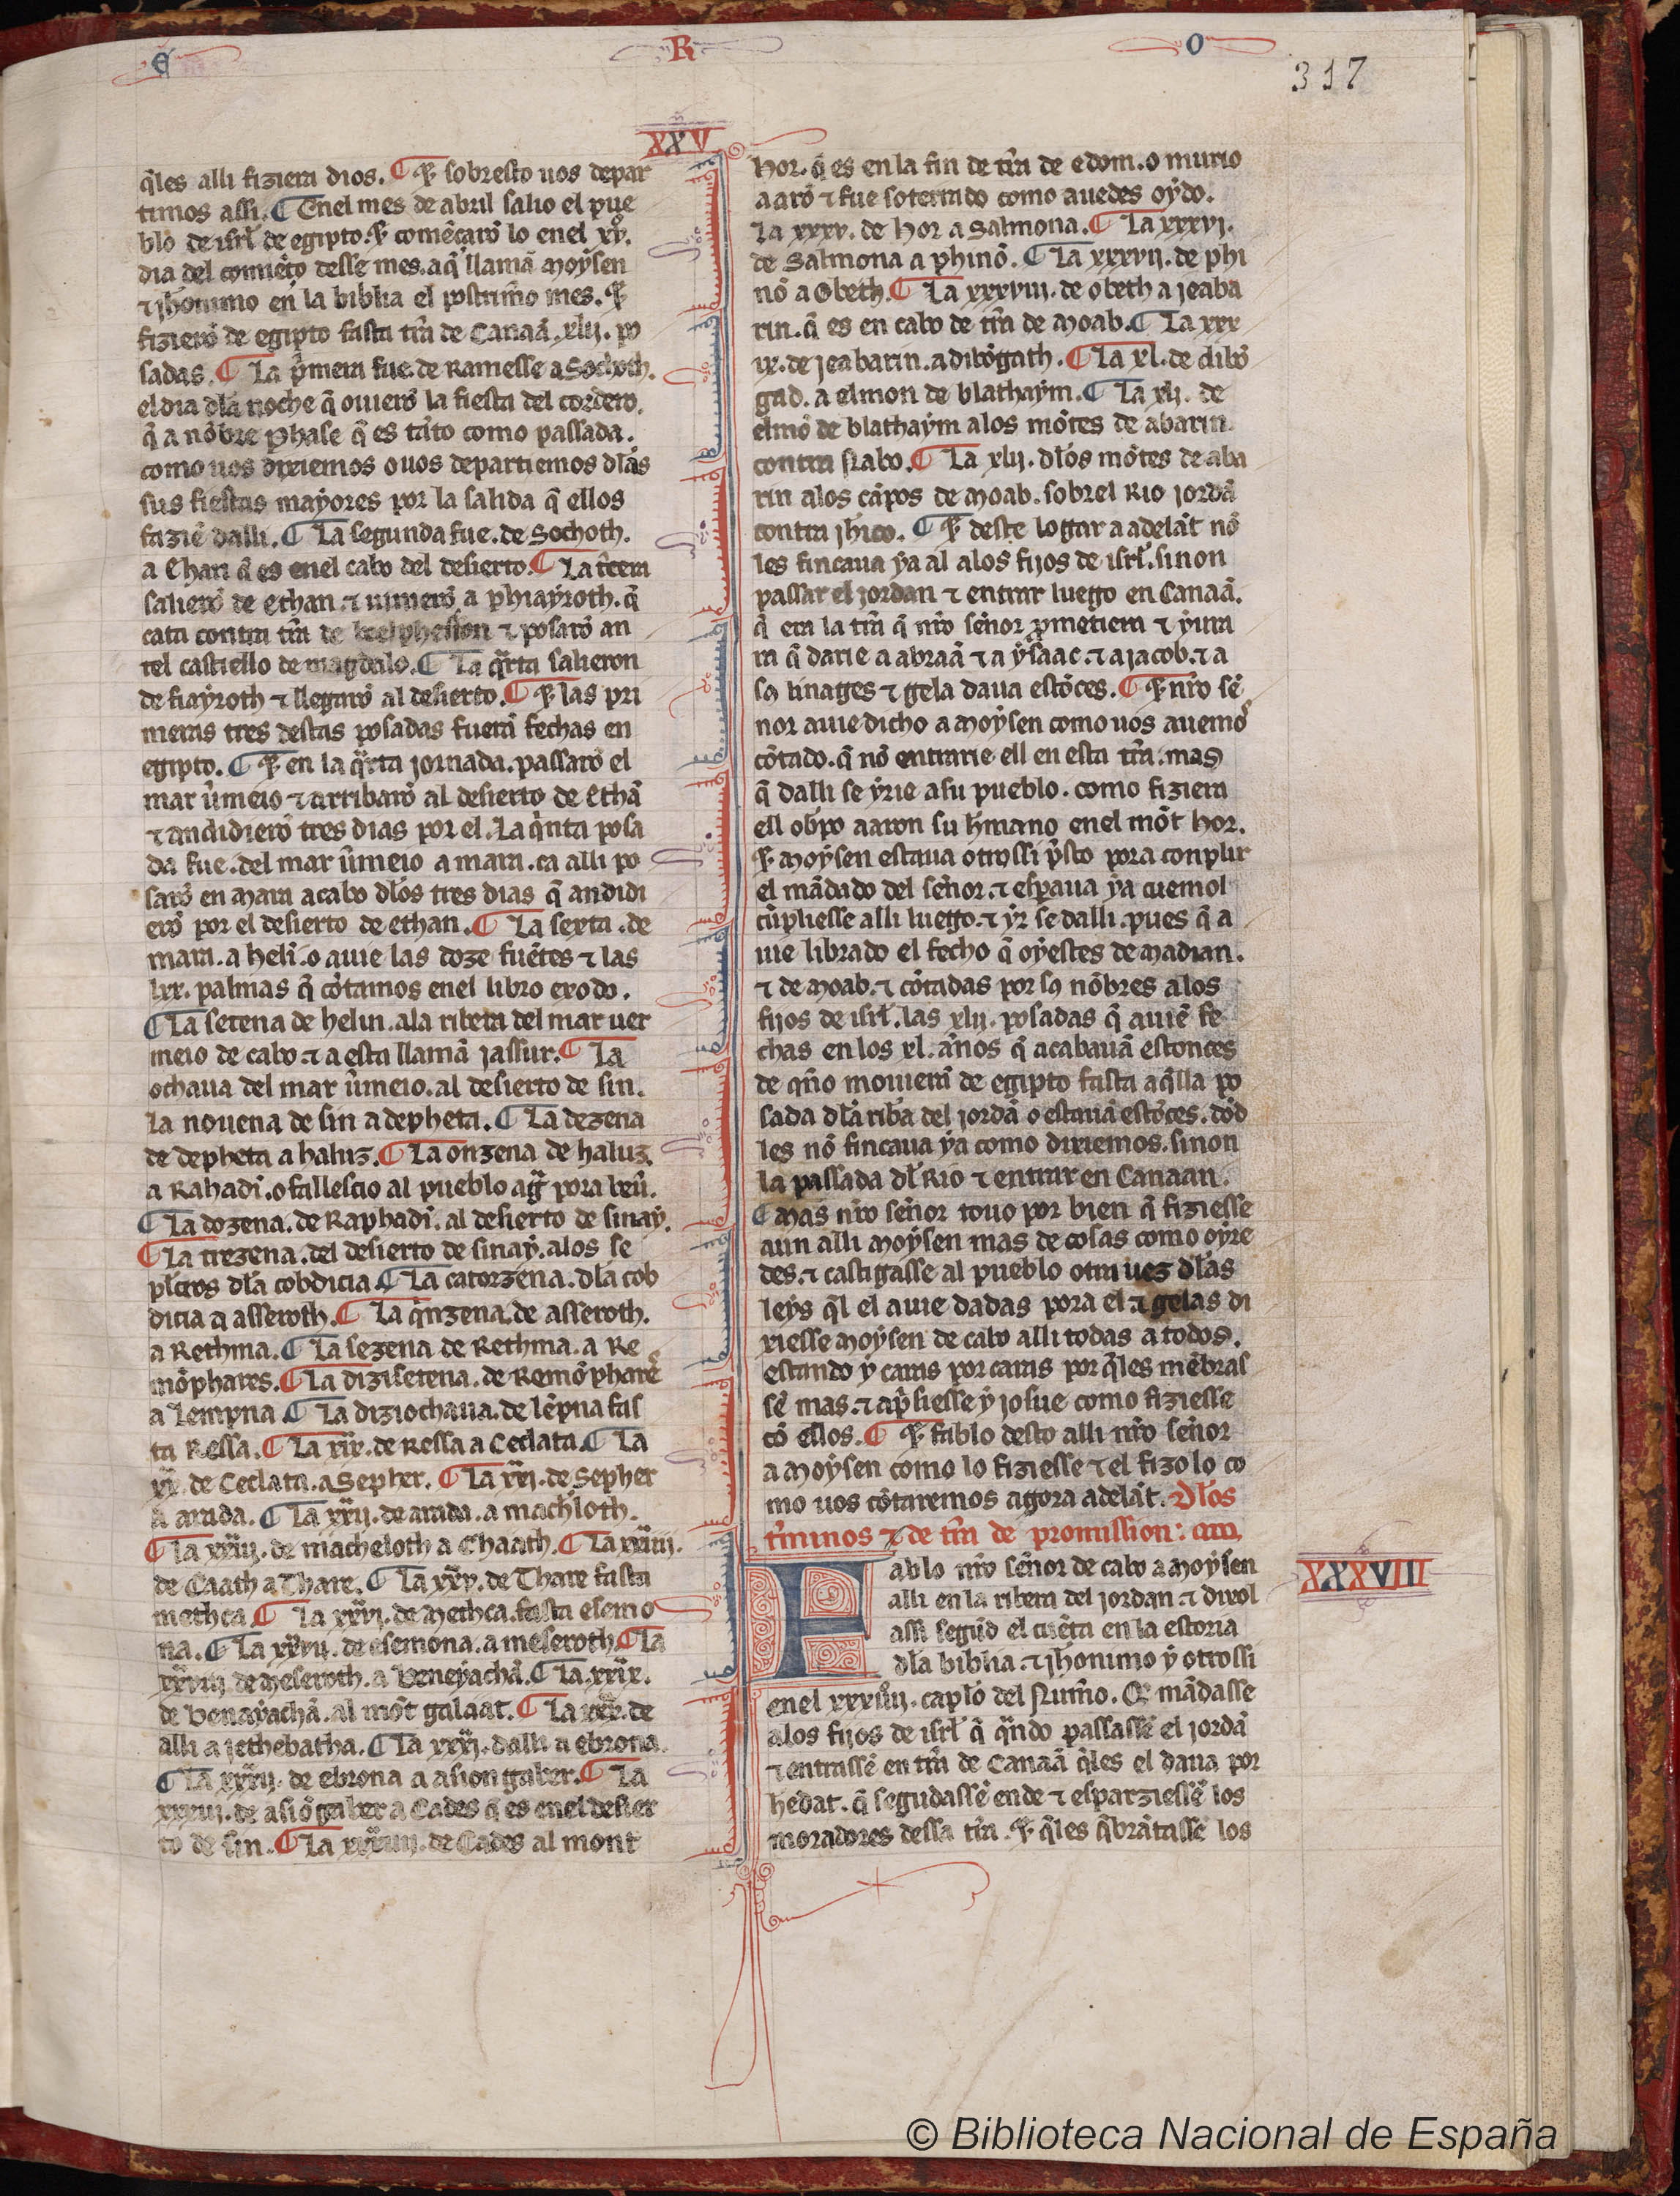 E R O
317
XXV
q̃les alli fiziera dios. ¶ ⁊ sobresto uos depar
timos assi. ¶ Enel mes de abril salio el pue
blo de isrł de egipto. ⁊ comẽçarõ lo enel xv.
dia del comiẽço desse mes. a q̃ llamã moẏsen
⁊ jħonimo en la biblia el postrim̃o mes. ⁊
fizierõ de egipto fasta tr̃ra de Canaã .xlij. po
sadas. ¶ La p̃mera fue. de Ramesse a Sochoth.
el dia dła noche q̃ ouierõ la fiesta del cordero.
q̃ a nõbre phase q̃ es tãto como passada.
como uos dixiemos o uos departiemos dłas
sus fiestas maẏores por la salida q̃ ellos
faziẽ dalli. ¶ La segunda fue. de Sochoth.
a Ethan q̃ es enel cabo del desierto. ¶ La t̃cera
salierõ de ethan. ⁊ uinierõ a phiaẏroth. q̃
cata contra tr̃ra de beelphesion ⁊ posarõ an
tel castiello de magdalo. ¶ La q̃rta salieron
de fiaẏroth ⁊ llegarõ al desierto. ¶ ⁊ las pri
meras tres destas posadas fuerõ fechas en
egipto. ¶ ⁊ en la q̃rta jornada. passarõ el
mar ũmeio ⁊ arribarõ al desierto de ethã
⁊ andidierõ tres dias por el. La q̃nta posa
da fue. del mar ũmeio a mara. ca alli po
sarõ en mara acabo dłos tres dias q̃ andidi
erõ por el desierto de ethan. ¶ La sexta. de
mara. a helĩ. o auie las doze fuẽtes ⁊ las
lxx. palmas q̃ cõtamos enel libro exodo.
¶ La setena de helin. ala ribera del mar uer
meio de cabo. ⁊ a esta llamã jassur. ¶ La
ochaua del mar ũmeio. al desierto de sin.
La nouena de sin a depheta. ¶ La dezena
de depheta a haluz. ¶ La onzena de haluz.
a Rahadĩ. o fallescio al pueblo ag̃ pora beũ.
¶ La dozena. de Raphadĩ. al desierto de sinaẏ.
¶ La trezena. del desierto de sinaẏ. alos se
płcros dła cobdicia. ¶ La catorzena. dła cob
dicia a asseroth. ¶ La q̃nzena. de asseroth.
a Rethma. ¶ La sezena de Rethma. a Re
mõphares. ¶ La diziseteña. de Remõpharẽ
a Lempna ¶ La diziochaua. de lẽpna fas
ta Ressa. ¶ La xix. de Ressa a Ceclata. ¶ La
xx. de Ceclata. a Sepher. ¶ La xxj. de Sepher
a arada. ¶ La xxij. de arada. a macħloth.
¶ La xxiij. de macheloth a Chaath. ¶ La xxiiij.
de Caath a Thare. ¶ La xxv. de Thare fasta
methca ¶ La xxvj. de methca. fasta esemo
na. ¶ La xxvij. de esemona. a meseroth. ¶ La
xxviij. de meseroth. a Beneẏachã. ¶ La. xxix.
de benaẏachã. al mõt galaat. ¶ La xxx. de
alli a jethebatha. ¶ La xxxj. dalli a ebrona.
¶ La xxxij. de ebrona a asiongaber. ¶ La
xxxiij. de asiõgaber a Cades q̃ es enel desier
to de sin. ¶ La xxxiiij. de Cades al mont
hor. q̃ es en la fin de tr̃ra de edom. o murio
a arõ ⁊ fue soterrado como auedes oẏdo.
La xxxv. de hor a Salmona. ¶ La xxxvj.
de Salmona a phinõ. ¶ La xxxvij. de phi
nõ a Obeth. ¶ La xxxviij. de obeth a jeaba
rin. q̃ es en cabo de tr̃ra de moab. ¶ La xxx
ix. de jeabarin. a dibõgath. ¶ La xl. de dibõ
gad. a elmon de blathaẏm. ¶ La xlj. de
elmõ de blathaẏm alos mõtes de abarin.
contra nabo. ¶ La xlij. dłos mõtes de aba
rin alos cãpos de moab. sobrel Rio jordã
contra jħico. ¶ ⁊ deste logar a adelãt nõ
les fincaua ẏa al alos fijos de isrł. sinon
passar el jordan ⁊ entrar luego en Canaã.
q̃ era la tr̃ra q̃ nr̃o señor p̃metiera ⁊ ẏura
ra q̃ darie a abraã ⁊ a ẏsaac. ⁊ a jacob. ⁊ a
sọ linages ⁊ gela daua estõces. ¶ ⁊ nr̃o sẽ
nor auie dicho a moẏsen como uos auemo᷒
cõtado. q̃ nõ entrarie ell en esta tr̃ra. mas
q̃ dalli se ẏrie a su pueblo. como fiziera
ell ob̃po aaron su h̃mano enel mõt hor.
⁊ moẏsen estaua otrossi p̃sto pora conplir
el mãdado del señor. ⁊ esp̃aua ẏa cuemol
cũpliesse alli luego. ⁊ ẏr se dalli. pues q̃ a
uie librado el fecho q̃ oẏestes de madian.
⁊ de moab. ⁊ cõtadas por sọ nõbres alos
fijos de isrł. las xlij. posadas q̃ auiẽ fe
chas en los xl. años q̃ acabauã estonces
de q̃ño mouierõ de egipto fasta aq̃lla po
sada dła rib̃a del jordã o estauã estõces. dõd
les nõ fincaua ẏa como dixiemos. sinon
la passada dł Rio ⁊ entrar en Canaan.
¶ Mas nr̃o señor touo por bien q̃ fiziesse
aun alli moẏsen mas de cosas como oẏre
des. ⁊ castigasse al pueblo otra uez dłas
leẏs q̃l el auie dadas pora el ⁊ gelas di
xiesse moẏsen de cabo alli todas a todos.
estando ẏ caras por caras por q̃les mẽbras
sẽ mas. ⁊ ap̃siesse ẏ josue como fiziesse
cõ ellos. ¶ ⁊ fablo desto alli nr̃o señor
a moẏsen como lo fiziesse ⁊ el fizo lo co
mo uos cõtaremos agora adelãt. Dłos
t̃minos ⁊ de tr̃ra de promission:
Fablo nr̃o señor de cabo a moẏsen
XXXVIII
alli en la ribera del jordan. ⁊ dixol
assi segũd el cuẽta en la estoria
dła biblia. ⁊ jħonimo ẏ otrossi
enel xxxiiij. capło del Num̃o. Q̃ mãdasse
alos fijos de isrł q̃ q̃ndo passassẽ el jordã
⁊ entrassẽ en tr̃ra de Canaã q̃les el daua por
hedat. q̃ segudassẽ ende ⁊ esparziessẽ los
moradores dessa tr̃ra. ⁊ q̃les q̃brãtassẽ los
© Biblioteca Nacional de España